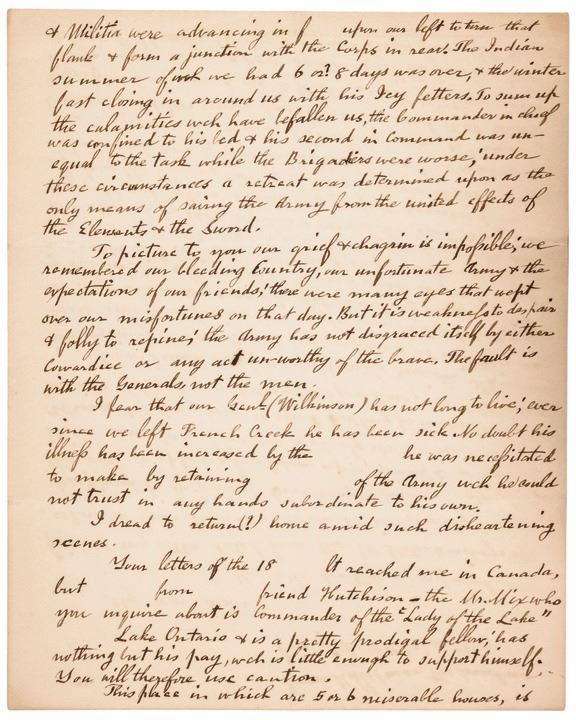 & Militia were advancing in f upon our left to turn that
flank & form a junction with the Corps in rear. The Indian
summer of wch we had 6 or? 8 days was over, & the winter
fast closing in around us with his Icy fetters. To sum up
the calamities wch have befallen us, the Commander in chief
was confined to his bed & his second in Command was un-
equal to the task while the Brigadiers were worse; under
these circumstances a retreat was determined upon as the
only means of saving the Army from the united effects of
the Elements & the Sword.
To picture to you our grief & chagrin is impossible; we
remembered our bleeding Country, our unfortunate Army & the
expectations of our friends; there were many eyes that wept
over our misfortunes on that day. But it is weakness to despair
& folly to repine; the Army has not disgraced itself by either
Cowardice or any act un-worthy of the brave. The fault is
with the Generals, not the men.
I fear that our Genl. (Wilkinson) has not long to live; ever
since we left French Creek he has been sick. No doubt his
illness has been increased by the he was necessitated
to make by retaining of the Army wch he could
not trust in any hands subordinate to his own.
I dread to return(?) home amid such disheartening
scenes.
Your letters of the 18 It reached me in Canada,
but from friend Hutchison - the Mr. Mix who
you inquire about is Commander of the "Lady of the Lake"
Lake Ontario & is a pretty prodigal fellow; has
nothing but his pay, wch is little enough to support himself.
You will therefore use caution.
This place in which are 5 or 6 miserable houses, is